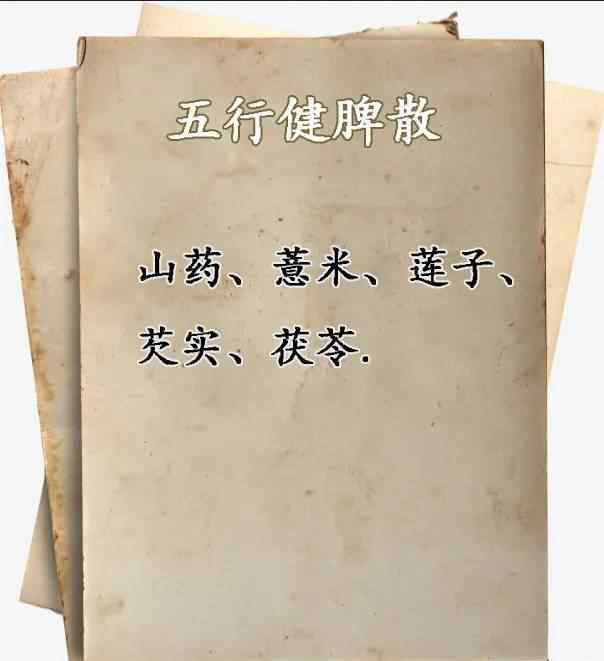 五行健脾散
山药、薏米、莲子、
芡实、茯苓.